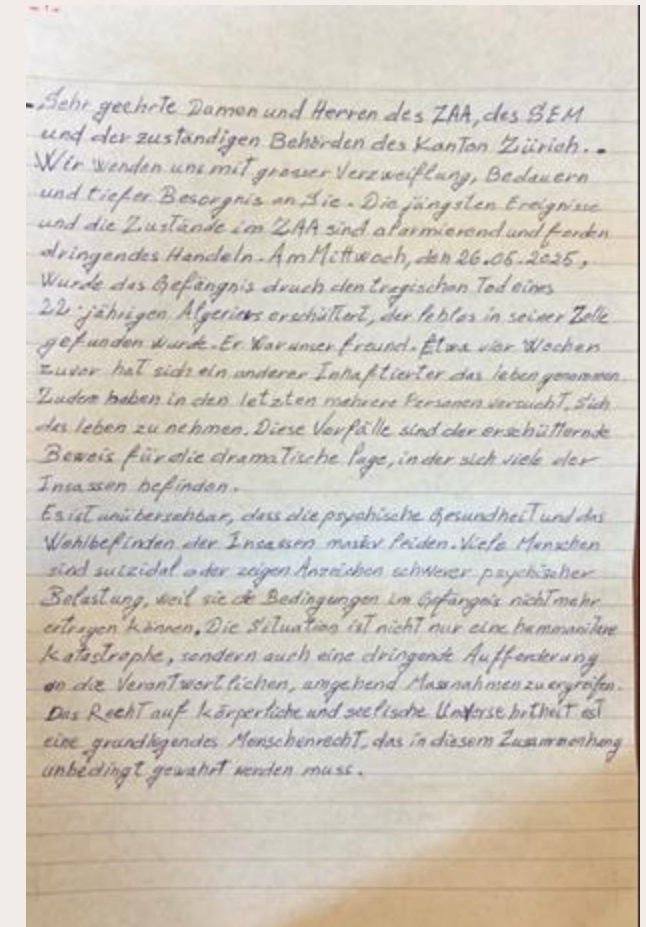 Sehr geehrte Damen und Herren des ZAA, des SEM
und der zuständigen Behörden des Kanton Zürich..
Wir wenden uns mit grosser Verzweiflung, Bedauern
und tiefer Besorgnis an Sie. Die jüngsten Ereignisse
und die Zustände im ZAA sind alarmierend und fordern
dringendes Handeln. Am Mittwoch, den 26.06.2025,
Wurde das Gefängnis druch den tragischen Tod eines
22-jährigen Algeriers erschüttert, der leblos in seiner Zelle
gefunden wurde. Er war unser freund. Etwa vier Wochen
zuvor hat sich ein anderer Inhaftierter das leben genommen.
Zudem haben in den letzten mehrere Personen versucht, Sich
das leben zu nehmen. Diese Vorfälle sind der erschütternde
Beweis für die dramatische Lage, in der sich viele der
Insassen befinden.
Es ist unübersehbar, dass die psychische Gesundheit und das
Wohlbefinden der Insassen massiv leiden. Viele Menschen
sind suizidal oder zeigen Anzeichen schwerer psychischer
Belastung, weil sie die Bedingungen im Gefängnis nicht mehr
ertragen können. Die Situation ist nicht nur eine hummanitäre
katastrophe, sondern auch eine dringende Aufforderung
an die Verantwortlichen, umgehend Massnahmen zu ergreifen.
Das Recht auf körperliche und seelische Unversehrtheit ist
eine grundlegendes Menschenrecht, das in diesem Zusammenhang
unbedingt gewahrt werden muss.